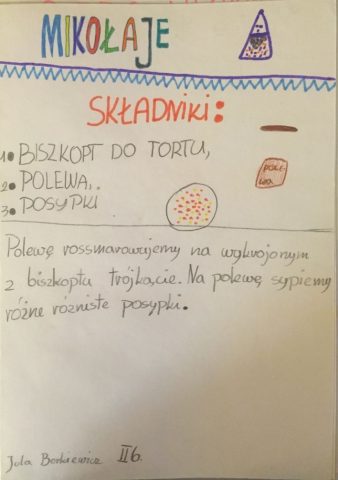 MIKOŁAJE
SKŁADNIKI:
1. BISZKOPT DO TORTU,
2. POLEWA,.
3. POSYPKI
POLE-
WA
Polewę rossmarowujemy na wykrojonym
z biszkoptu trójkącie. Na polewę sypiemy
różne rózniste posypki.
Jola Borkiewicz II b.